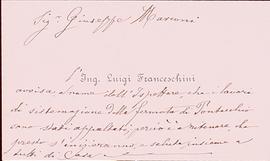 Sig. Giuseppe Marconi
L'Ing. Luigi Franceschini
avvisa a nome dell'Ispettore che i lavori
di sistemazione della fermata di Pontecchio
sono stati appaltati, perciò è a ritenere che
presto s'inizieranno, e saluta insieme a
tutti di Casa